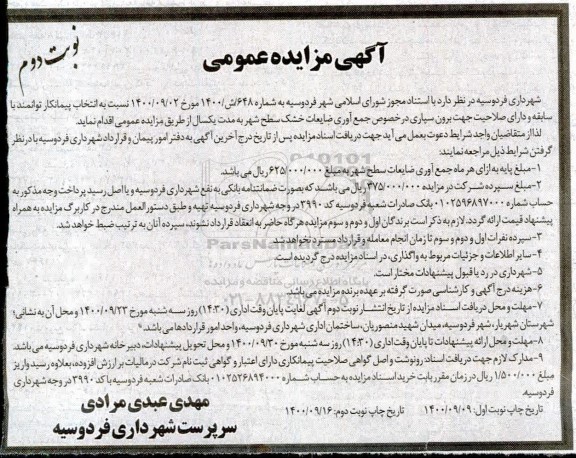 نوبت دوم
آگهی مزایده عمومی
شهرداری فردوسیه در نظر دارد با استناد مجوز شورای اسلامی شهر فردوسیه به شماره ۶۴۸/ش/۱۴۰۰ مورخ ۱۴۰۰/۰۹/۰۲ نسبت به انتخاب پیمانکار توانمند با
سابقه و دارای صلاحیت جهت برون سپاری درخصوص جمع آوری ضایعات خشک سطح شهر به مدت یکسال از طریق مزایده عمومی اقدام نماید.
لذا از متقاضیان واجد شرایط دعوت بعمل می آید جهت دریافت اسناد مزایده پس از تاریخ درج آخرین آگهی به دفتر امور پیمان و قرارداد شهرداری فردوسیه با در نظر
گرفتن شرایط ذیل مراجعه نمایند:
۱-مبلغ پایه به ازای هر ماه جمع آوری ضایعات سطح شهر به مبلغ ۶۲۵/۰۰۰/۰۰۰ ریال می باشد.
۲-مبلغ سپرده شرکت در مزایده ۳۷۵/۰۰۰/۰۰۰ ریال می باشد که بصورت ضمانتنامه بانکی به نفع شهرداری فردوسیه و یا اصل رسید پرداخت وجه مذکور به
حساب شماره ۰۱۰۲۵۹۶۸۹۷۰۰۰ بانک صادرات شعبه فردوسیه کد ۳۹۹۰ در وجه شهرداری فردوسیه تهیه و طبق دستورالعمل مندرج در کاربرگ مزایده به همراه
پیشنهاد قیمت ارائه گردد. لازم به ذکر است برندگان اول و دوم و سوم مزایده هرگاه حاضر به انعقاد قرارداد نشوند، سپرده آنان به ترتیب ضبط خواهد شد.
۳-سپرده نفرات اول و دوم و سوم تا زمان انجام معامله و قرارداد مسترد نخواهد شد.
۴-سایر اطلاعات و جزئیات مربوط به واگذاری، در اسناد مزایده درج گردیده است.
۵-شهرداری در رد یا قبول پیشنهادات مختار است.
۶-هزینه درج آگهی و کارشناسی صورت گرفته بر عهده برنده مزایده می باشد.
۷-مهلت و محل دریافت اسناد مزایده از تاریخ انتشار نوبت دوم آگهی لغایت پایان وقت اداری (۱۴:۳۰) روز سه شنبه مورخ ۱۴۰۰/۰۹/۲۳ و محل آن به نشانی؛
شهرستان شهریار، شهر فردوسیه، میدان شهید منصوریان، ساختمان اداری شهرداری فردوسیه، واحد امور قراردادها می باشد.
۸-مهلت و محل ارائه پیشنهادات تا پایان وقت اداری (۱۴:۳۰) روز سه شنبه مورخ ۱۴۰۰/۰۹/۳۰ و محل تحویل پیشنهادات، دبیرخانه شهرداری فردوسیه می باشد.
۹-مدارک لازم جهت دریافت اسناد: رونوشت و اصل گواهی صلاحیت پیمانکاری دارای اعتبار و گواهی ثبت نام شرکت در مالیات بر ارزش افزوده، بعلاوه رسید واریز
مبلغ ۱/۵۰۰/۰۰۰ ریال در زمان مقرر بابت خرید اسناد مزایده به حساب شماره ۰۱۰۲۵۲۶۸۹۴۰۰۰ بانک صادرات شعبه فردوسیه با کد ۳۹۹۰ در وجه شهرداری
فردوسیه.
تاریخ چاپ نوبت اول: ۱۴۰۰/۰۹/۰۹ تاریخ چاپ نوبت دوم: ۱۴۰۰/۰۹/۱۶
مهدی عبدی مرادی
سرپرست شهرداری فردوسیه